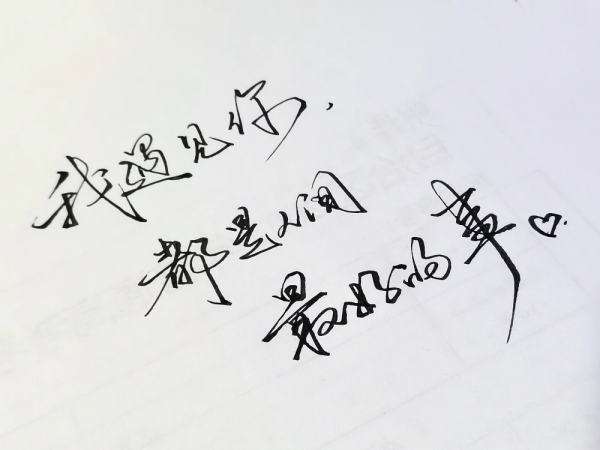 我遇见你，
都是人间
最好的事♡.